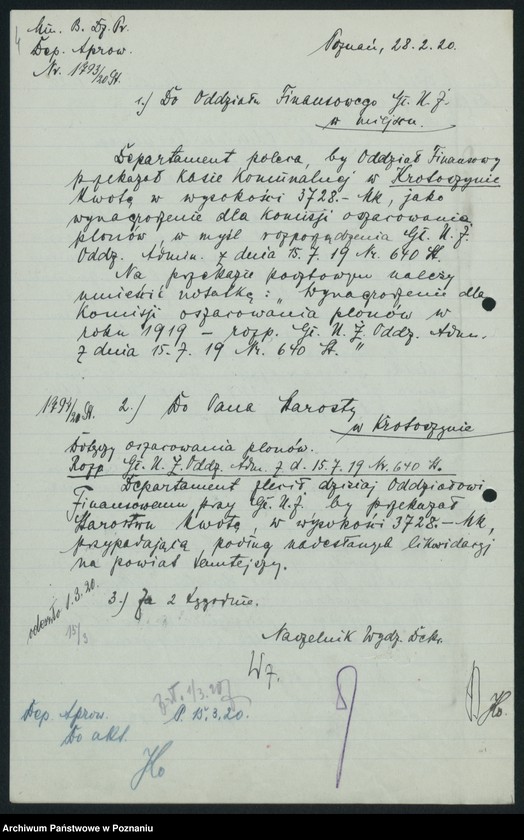 4
Min. B. Dz. Pr.
Dep. Aprow.
Nr. 1793/20 St.
Poznań, 28.2.20.
1.) Do Oddziału Finansowego Gł. U. Z.
w miejscu.
Departament poleca, by Oddział Finansowy
przekazał Kasie Komunalnej w Krotoszynie
kwotę w wysokości 3728.- Mk, jako
wynagrodzenie dla Komisji oszacowania
plonów, w myśl rozporządzenia Gł. U. Z.
Oddz. Admin. z dnia 15.7.19 Nr. 640 St.
Na przekazie pocztowym należy
umieścić notatkę: „Wynagrodzenie dla
Komisji oszacowania plonów w
roku 1919 - rozp. Gł. U. Z. Oddz. Adm.
z dnia 15.7.19 Nr. 640 St."
1794/20 St. 2.) Do Pana Starosty
w Krotoszynie
Dotyczy oszacowania plonów.
Rozp. Gł. U. Z. Oddz. Adm. z d. 15.7.19 Nr. 640 St.
Departament zlecił dzisiaj Oddziałowi
Finansowemu przy Gł. U. Z. by przekazał
Starostwu kwotę w wysokości 3728.- Mk,
przypadającą podług nadesłanych likwidacji
na powiat tamtejszy.
3.) Za 2 tygodnie.
1.3.20.
15/3
Naczelnik Wydz.
Wz.
1/3.20
P. 15.3.20.
Dep. Aprow.
Do akt.
Ho
Ho.
Archiwum Państwowe w Poznaniu